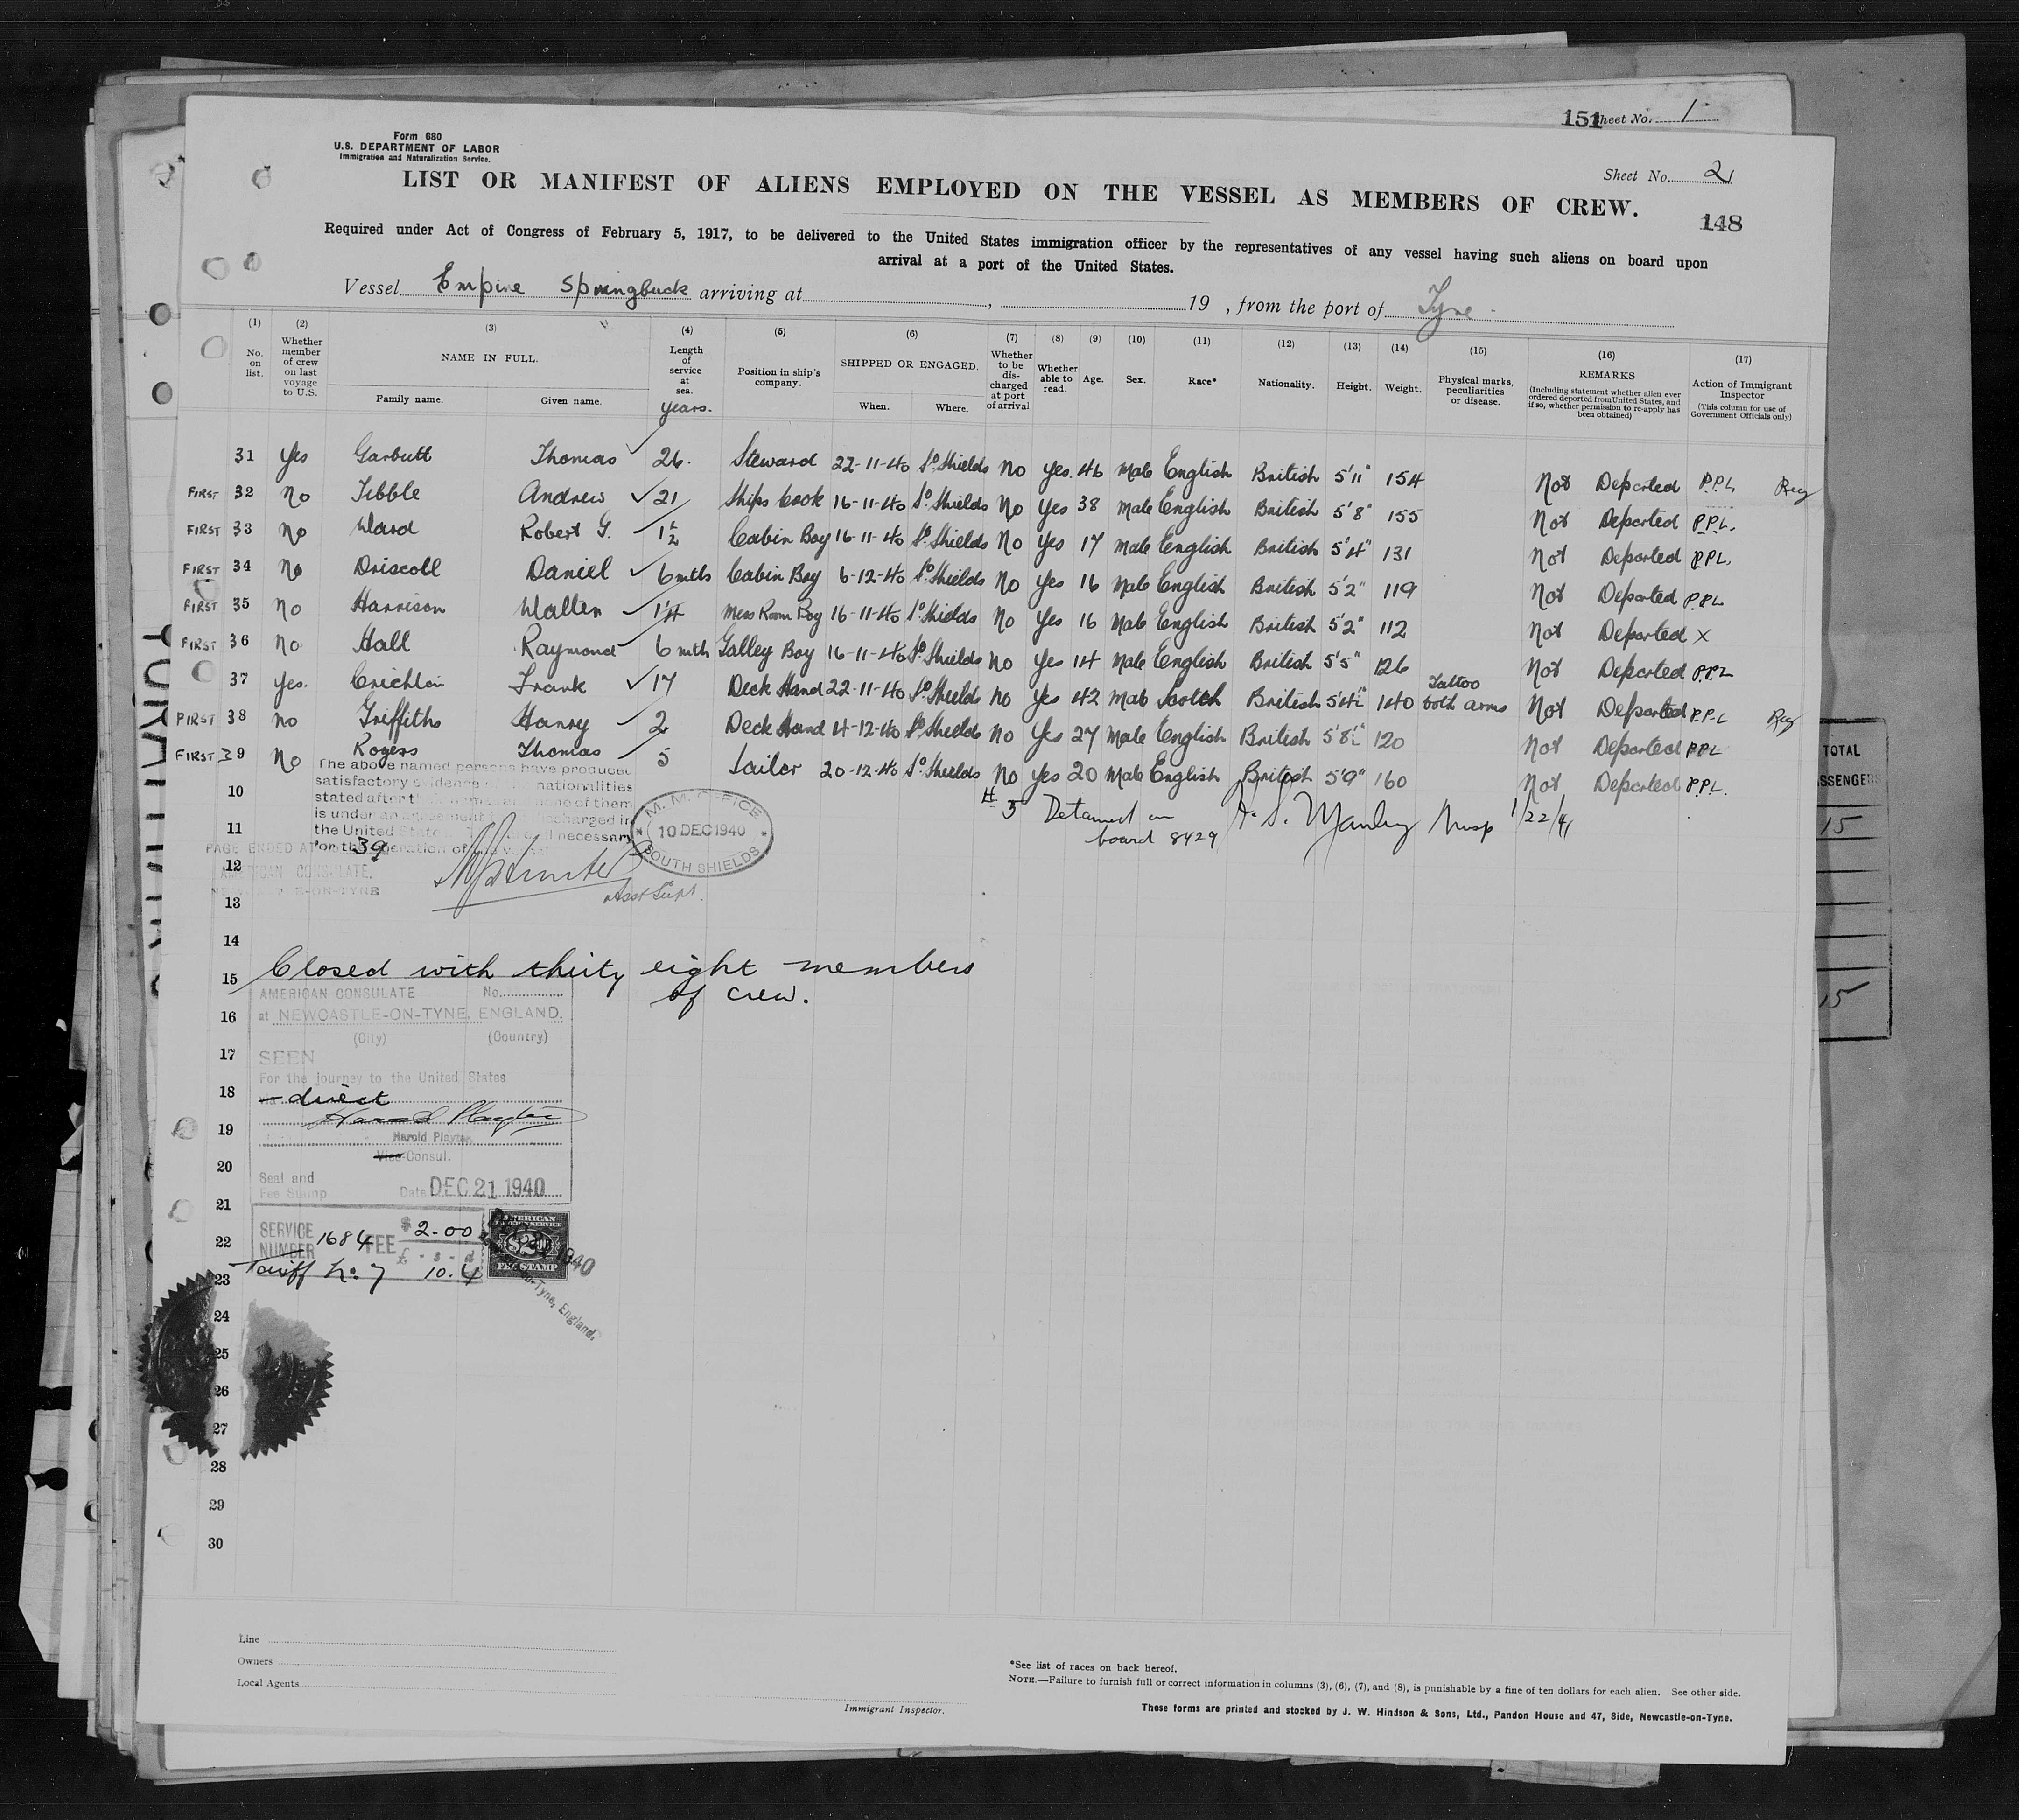 151 Sheet No. 1
Form 680
U.S. DEPARTMENT OF LABOR
Immigration and Naturalization Service.
Sheet No. 2
LIST OR MANIFEST OF ALIENS EMPLOYED ON THE VESSEL AS MEMBERS OF CREW.
148
Required under Act of Congress of February 5, 1917, to be delivered to the United States immigration officer by the representatives of any vessel having such aliens on board upon
arrival at a port of the United States.
Vessel Empire Springbuck arriving at , 19 , from the port of Tyne
(1) (2) (3) (4) (5) (6) (7) (8) (9) (10) (11) (12) (13) (14) (15) (16) (17)
No. on list. Whether member of crew on last voyage to U.S. NAME IN FULL. Family name. Given name. Length of service at sea. years. Position in ship's company. SHIPPED OR ENGAGED. When. Where. Whether to be discharged at port of arrival Whether able to read. Age. Sex. Race* Nationality. Height. Weight. Physical marks, peculiarities or disease. REMARKS (Including statement whether alien ever ordered deported from United States, and if so, whether permission to re-apply has been obtained) Action of Immigrant Inspector (This column for use of Government Officials only)
31 Yes Garbutt Thomas 26. Steward 22-11-40 So. Shields No Yes. 46 Male English British 5'11" 154 Not Deported P.P.L. Reg
FIRST 32 No Tibble Andrew 21 Ships Cook 16-11-40 So. Shields No Yes 38 Male English British 5'8" 155 Not Deported P.P.L.
FIRST 33 No Ward Robert G. 1½ Cabin Boy 16-11-40 So. Shields No Yes 17 Male English British 5'4" 131 Not Deported P.P.L.
FIRST 34 No Driscoll Daniel 6 mths Cabin Boy 6-12-40 So. Shields No Yes 16 Male English British 5'2" 119 Not Deported P.P.L
FIRST 35 No Harrison Walter 1¼ Mess Room Boy 16-11-40 So. Shields No Yes 16 Male English British 5'2" 112 Not Deported X
FIRST 36 No Hall Raymond 6 mth Galley Boy 16-11-40 So. Shields No Yes 14 Male English British 5'5" 126 Not Deported P.P.L
37 Yes. Crichton Frank 17 Deck Hand 22-11-40 So. Shields No Yes 42 Male Scotch British 5'4½" 140 Tattoo both arms Not Deported P.P.L Reg
FIRST 38 No Griffiths Harry 2 Deck Hand 4-12-40 So. Shields No Yes 27 Male English British 5'8½" 120 Not Deported P.P.L
FIRST 39 No Rogers Thomas 5 Sailor 20-12-40 So. Shields No Yes 20 Male English British 5'9" 160 Not Deported P.P.L.
The above named persons have produced
satisfactory evidence nationalities
stated after none of them
is under an agreement discharged in
the United States necessary
for the operation of
# 5 Detained on
board 8429 1/22/41
10
11
12
13
14
15
16
17
18
19
20
21
22
23
24
25
26
27
28
29
30
M. M. OFFICE
10 DEC 1940
SOUTH SHIELDS
PAGE ENDED AT 39
AMERICAN CONSULATE,
NEWCASTLE-ON-TYNE
Asst Supt.
Closed with thirty eight members
of crew.
AMERICAN CONSULATE No.
at NEWCASTLE-ON-TYNE, ENGLAND.
(City) (Country)
SEEN
For the journey to the United States
direct
Harold Playter
Harold Playter
Vice Consul.
Seal and
Fee Stamp Date DEC 21 1940
SERVICE NUMBER 1684 FEE $ 2.00
£ - s - d
Tariff No 7 10.4
AMERICAN FOREIGN SERVICE
FEE STAMP
1940
Tyne, England.
TOTAL
PASSENGERS
15
15
Line
Owners
Local Agents
Immigrant Inspector.
*See list of races on back hereof.
NOTE.—Failure to furnish full or correct information in columns (3), (6), (7), and (8), is punishable by a fine of ten dollars for each alien. See other side.
These forms are printed and stocked by J. W. Hindson & Sons, Ltd., Pandon House and 47, Side, Newcastle-on-Tyne.